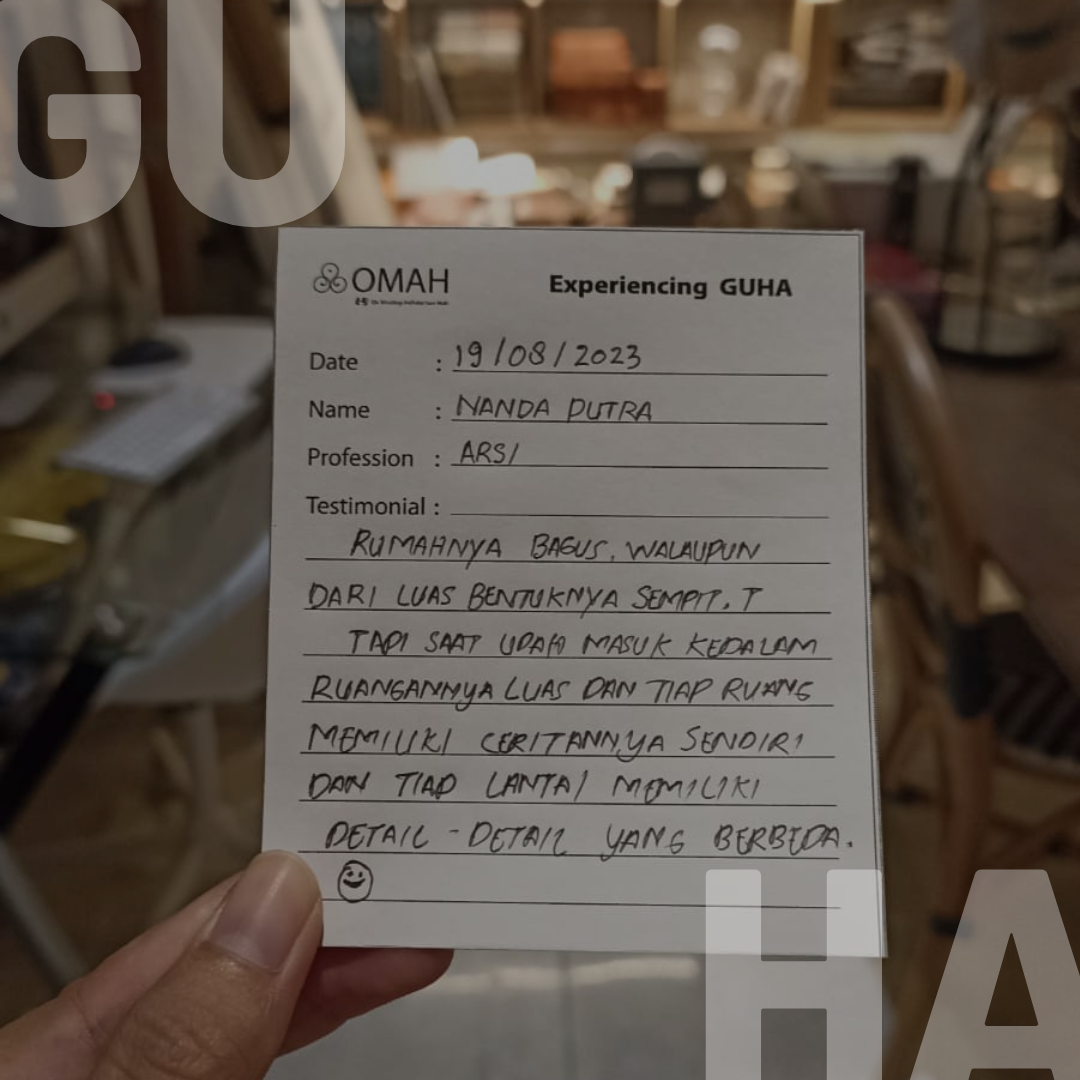 GU
OMAH
Experiencing GUHA
Date : 19/08/2023
Name : NANDA PUTRA
Profession : ARSI
Testimonial :
RUMAHNYA BAGUS, WALAUPUN
DARI LUAS BENTUKNYA SEMPIT. T
TAPI SAAT UDAH MASUK KEDALAM
RUANGANNYA LUAS DAN TIAP RUANG
MEMILIKI CERITANNYA SENDIRI
DAN TIAP LANTAI MEMILIKI
DETAIL - DETAIL YANG BERBEDA.
HA